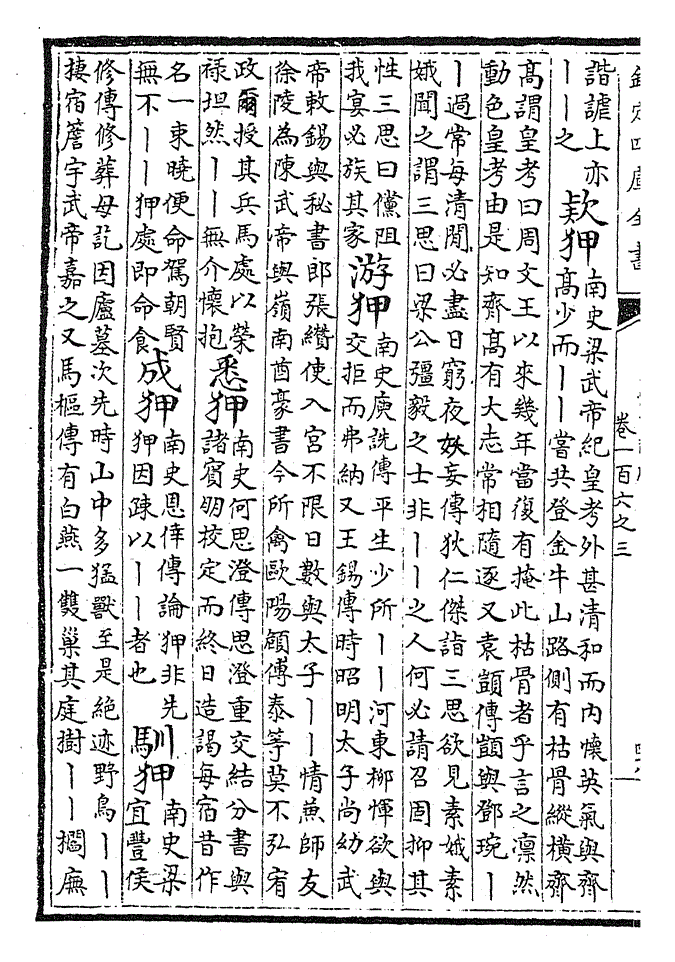 欽定四庫全書
卷一百六之三
諧謔上亦
丨丨之
款狎
南史梁武帝紀皇考外甚清和而内懷英氣與齊
髙少而丨丨嘗共登金牛山路側有枯骨縱横齊
髙謂皇考曰周文王以來幾年當復有掩此枯骨者乎言之凛然
動色皇考由是知齊髙有大志常相隨逐又袁顗傳顗與鄧琬丨
丨過常每清閒必盡日窮夜妖妾傳狄仁傑詣三思欲見素娥素
娥聞之謂三思曰梁公彊毅之士非丨丨之人何必請召固抑其
性三思曰儻阻
我宴必族其家
游狎
南史庾詵傳平生少所丨丨河東柳惲欲與
交拒而弗納又王錫傳時昭明太子尚幼武
帝敕錫與秘書郎張纘使入宮不限日數與太子丨丨情兼師友
徐陵為陳武帝與嶺南酋豪書今所禽歐陽頠傅泰等莫不弘宥
政爾授其兵馬處以榮
禄坦然丨丨無介懷抱
悉狎
南史何思澄傳思澄重交結分書與
諸賓朋校定而終日造謁每宿昔作
名一束曉便命駕朝賢
無不丨丨狎處即命食
成狎
南史恩倖傳論狎非先
狎因疎以丨丨者也
馴狎
南史梁
宜豐侯
修傳修葬母訖因廬墓次先時山中多猛獸至是絶迹野鳥丨丨
棲宿簷宇武帝嘉之又馬樞傳有白燕一雙巢其庭樹丨丨攔廡